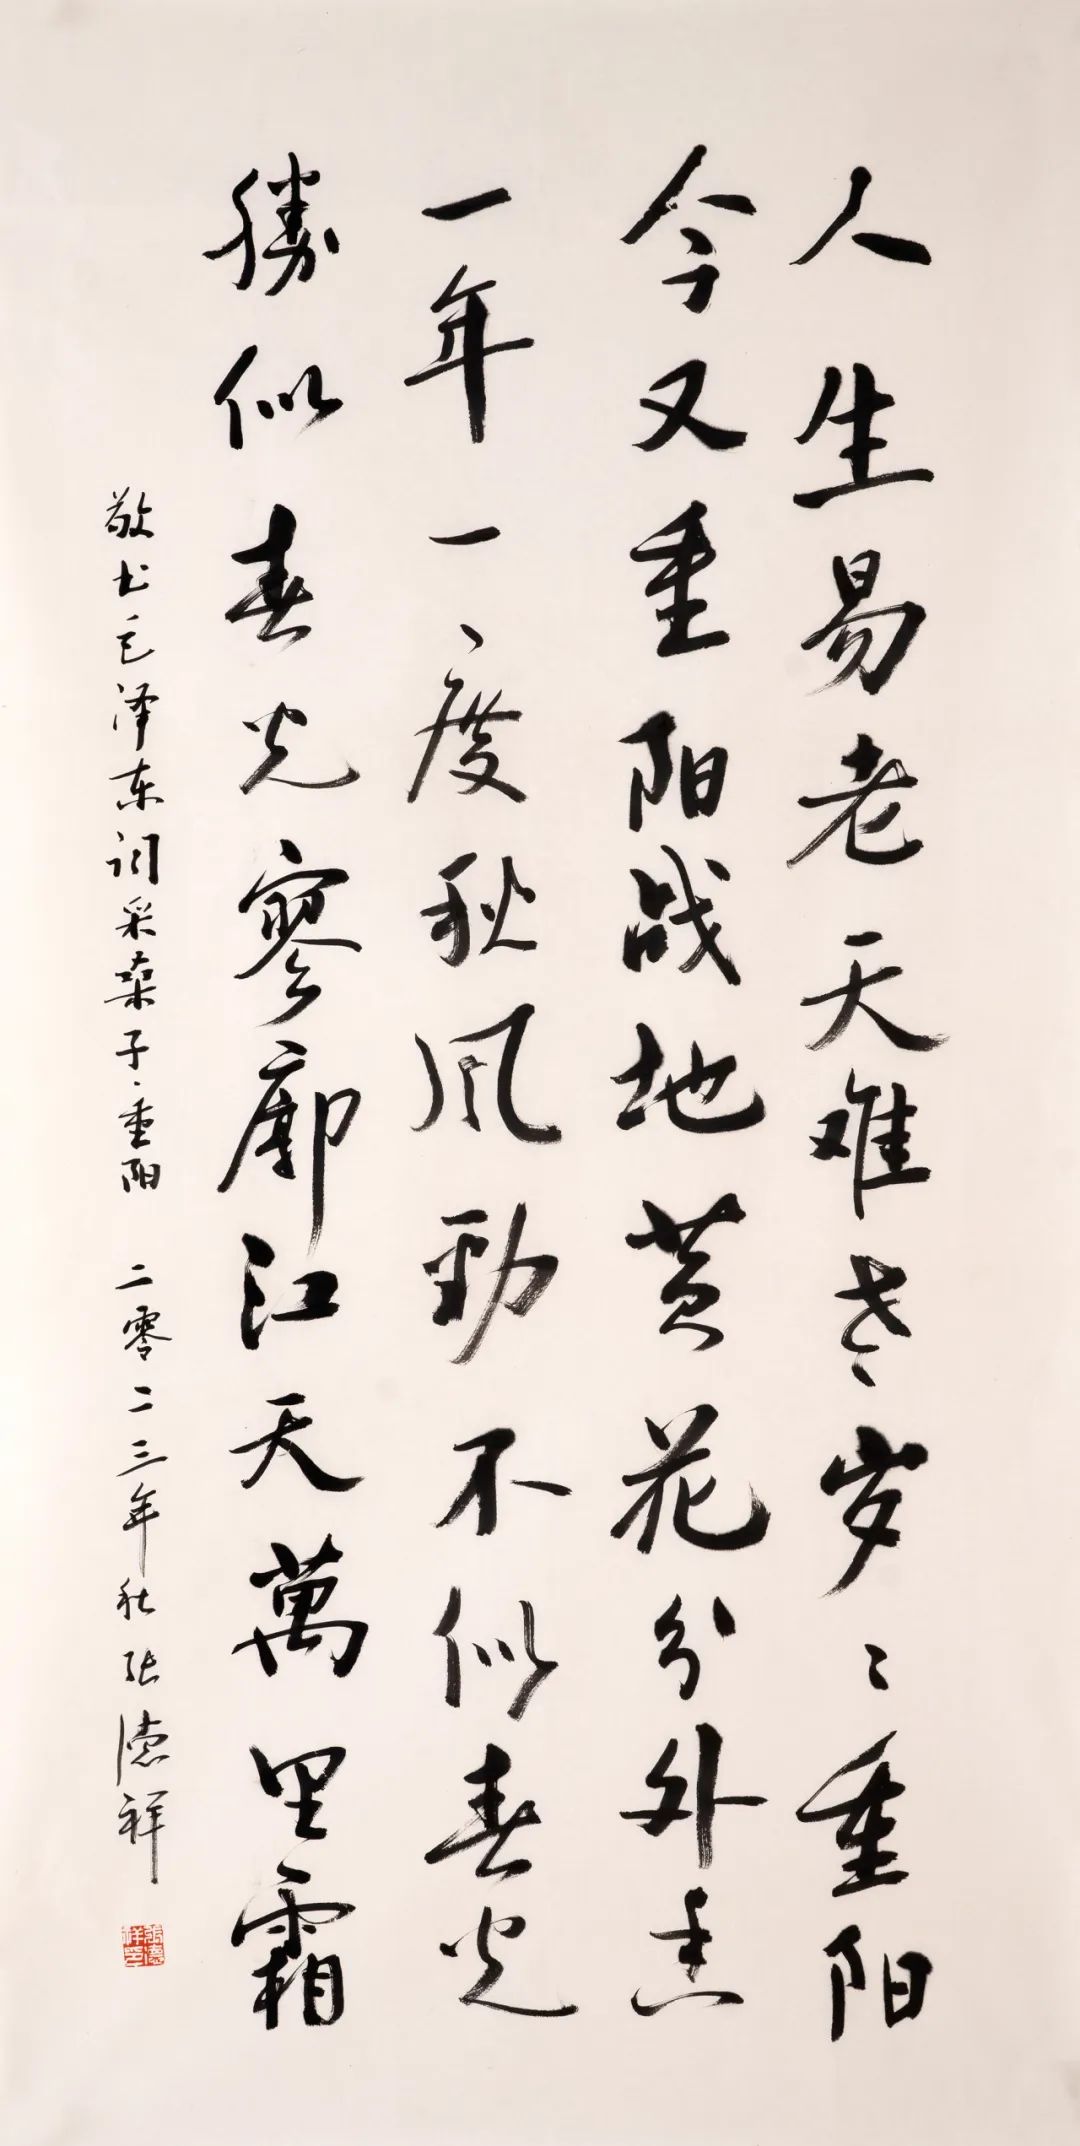 人生易老天难老岁〻重阳
今又重阳战地黄花分外香
一年一度秋风劲不似春光
勝似春光寥廓江天萬里霜
敬书毛泽东词采桑子·重阳 二零二三年秋张德祥
張德祥印